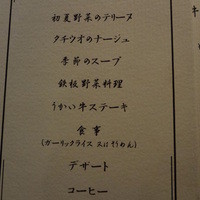 初夏野菜のテリーヌ
タチウオのナージュ
季節のスープ
鉄板野菜料理
うかい牛ステーキ
食事
(ガーリックライス 又は そうめん)
デザート
コーヒー
牛